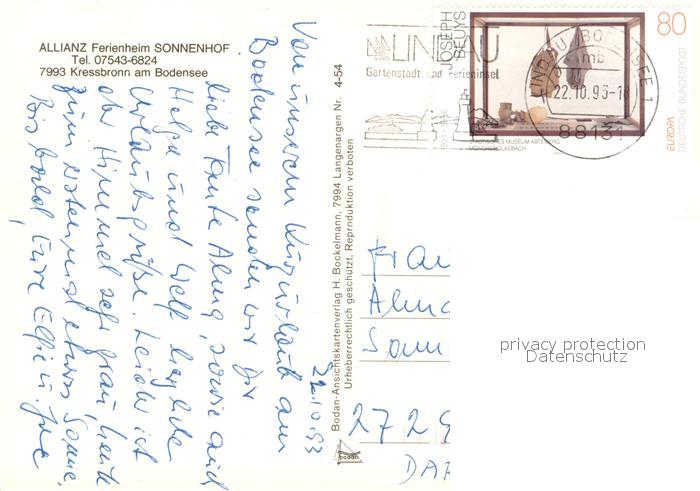 ALLIANZ Ferienheim SONNENHOF
Tel. 07543-6824
7993 Kressbronn am Bodensee
22.10.93
Von unserem Kurzurlaub am
Bodensee senden wir Dir
liebe Tante Alma, sowie auch
Helga und Wolf herzliche
Urlaubsgrüße. Leider ist
der Himmel sehr grau, heute
zum erstenmal etwas Sonne.
Bis bald, Eure Elfie u.
Bodan-Ansichtskartenverlag H. Bockelmann, 7994 Langenargen Nr. 4-54
Urheberrechtlich geschützt, Reproduktion verboten
bodan
LINDAU
Gartenstadt und Ferieninsel
JOSEPH
BEUYS
80
LINDAU, BODENSEE 1
mb
22.10.93-18
88131
STÄDTISCHES MUSEUM ABTEIBERG
MÖNCHENGLADBACH
EUROPA
DEUTSCHE BUNDESPOST
Frau
Alma
2729
privacy protection
Datenschutz